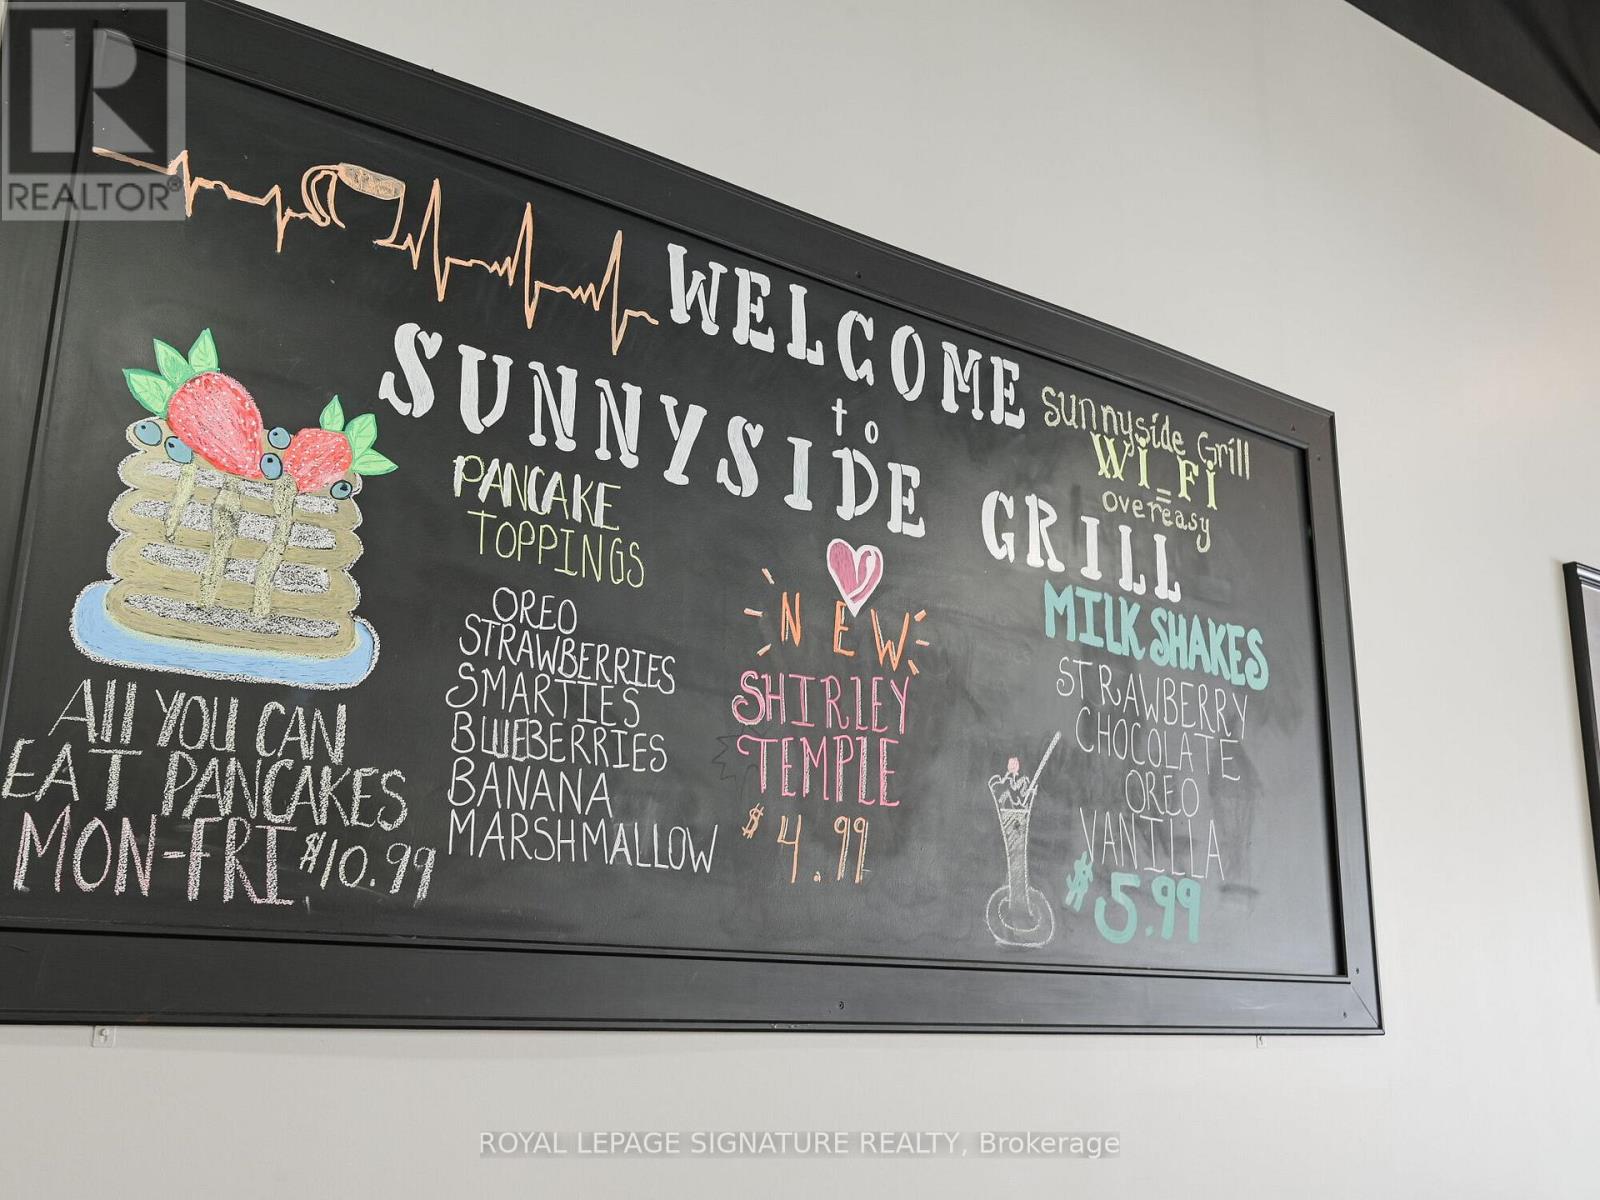 REALTOR®
WELCOME
to
SUNNYSIDE GRILL
sunnyside Grill
Wi-Fi
overeasy
PANCAKE
TOPPINGS
OREO
STRAWBERRIES
SMARTIES
BLUEBERRIES
BANANA
MARSHMALLOW
All YOU CAN
EAT PANCAKES
MON-FRI $10.99
NEW
SHIRLEY
TEMPLE
$4.99
MILKSHAKES
STRAWBERRY
CHOCOLATE
OREO
VANILLA
$5.99
ROYAL LEPAGE SIGNATURE REALTY, Brokerage